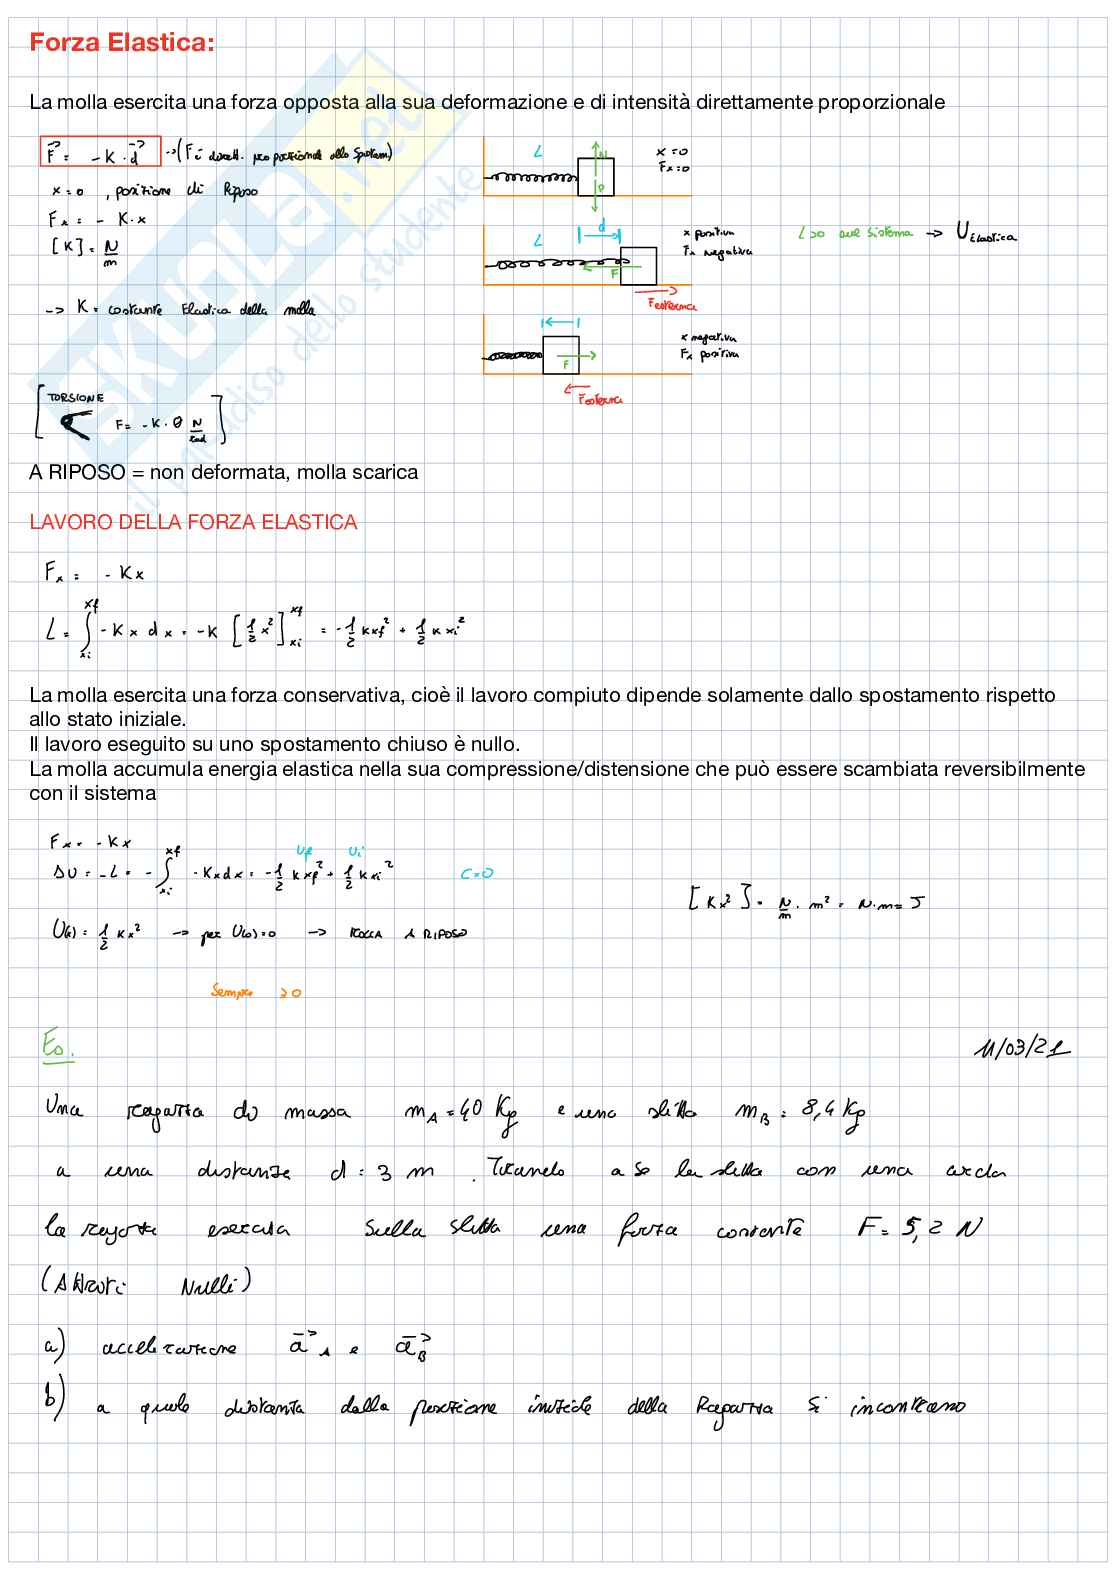 Forza Elastica:
La molla esercita una forza opposta alla sua deformazione e di intensità direttamente proporzionale
F = - K · d → (F è dirett. proporzionale allo Spostam)
x = 0 , posizione di Riposo
Fx = - K · x
[K] = N/m
→ K = costante Elastica della molla
L
N
P
x = 0
Fx = 0
L
d
F
Festerna
x positiva
Fx negativa
L>0 sul sistema → U Elastica
F
Festerna
x negativa
Fx positiva
TORSIONE
F = - K · θ N/rad
A RIPOSO = non deformata, molla scarica
LAVORO DELLA FORZA ELASTICA
Fx = - Kx
L = ∫xi xf - K x dx = - K [1/2 x²]xi xf = - 1/2 K xf² + 1/2 K xi²
La molla esercita una forza conservativa, cioè il lavoro compiuto dipende solamente dallo spostamento rispetto
allo stato iniziale.
Il lavoro eseguito su uno spostamento chiuso è nullo.
La molla accumula energia elastica nella sua compressione/distensione che può essere scambiata reversibilmente
con il sistema
Fx = - Kx
Uf Ui
ΔU = - L = - ∫xi xf - Kxdx = - 1/2 K xf² + 1/2 K xi² C=0
[Kx²] = N/m · m² = N·m = J
U(x) = 1/2 Kx² → per U(0)=0 → A RIPOSO
Sempre ≥0
Es. 11/03/21
Una ragazza di massa mA = 40 Kg e una slitta mB = 8,4 Kg
a una distanza d = 3 m . Tirando a se la slitta con una corda
la ragazza esercita sulla slitta una forza costante F = 5,2 N
(Attriti Nulli)
a) accelerazione aA e aB
b) a quale distanza dalla posizione iniziale della Ragazza si incontrano
SKUOLA.net
il paradiso dello studente